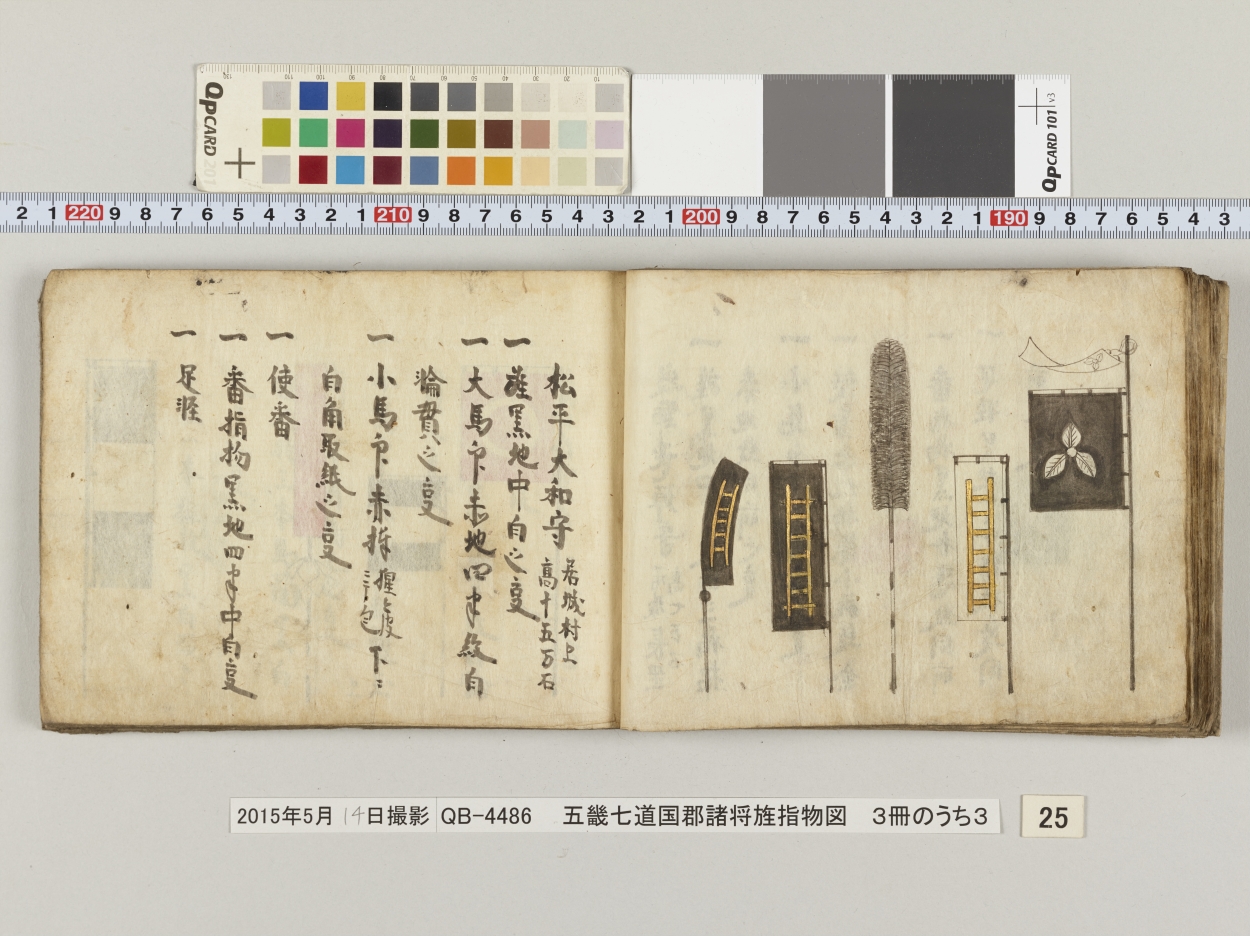 QpCARD 201
QpCARD 101 v3
2 1 220 9 8 7 6 5 4 3 2 1 210 9 8 7 6 5 4 3 2 1 200 9 8 7 6 5 4 3 2 1 190 9 8 7 6 5 4 3
松平大和守 居城村上 高十五万石
一 黒地中白之
一 大馬印赤地四半紋白
輪貫之
一 小馬印赤
白角取紙之
一 使番
一 番指物黒地四半中白
一 足
2015年5月14日撮影 QB-4486 五畿七道国郡諸将旌指物図 3冊のうち3
25